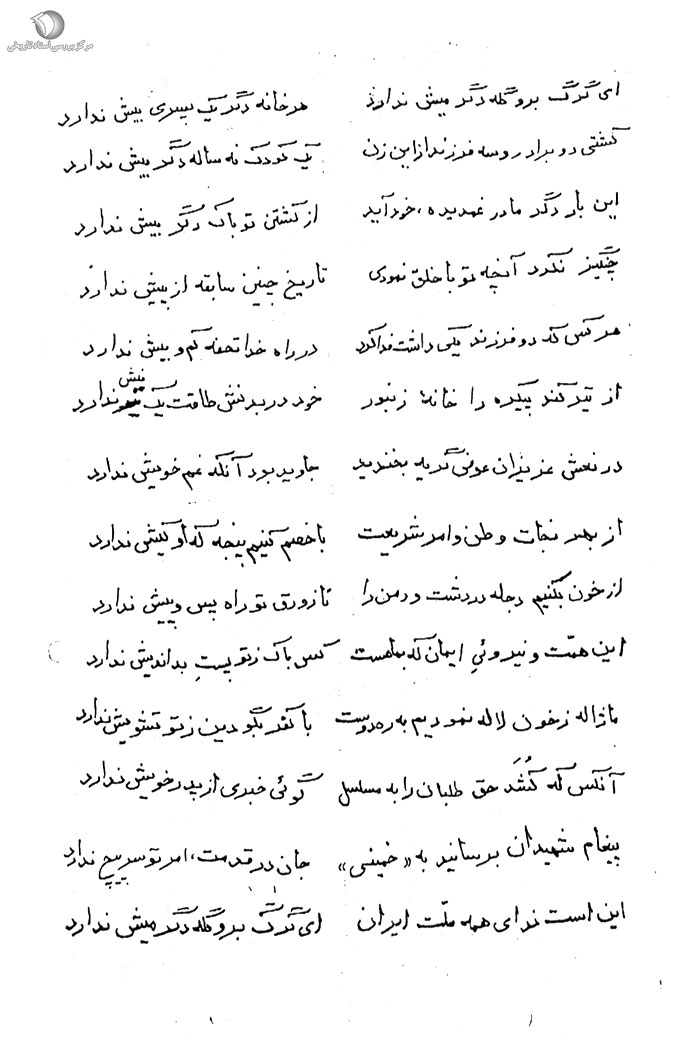 مرکز بررسی اسناد تاریخی
ای گرگ برو گله دگر میش ندارد هر خانه دگر یک پسری بیش ندارد
کشتی دو برادر و سه فرزند از این زن یک کودک نه ساله دگر بیش ندارد
این بار دگر مادر غمدیده، خود آید از کشتن تو باک دگر بیش ندارد
چنگیز نکرد آنچه تو با خلق نمودی تاریخ چنین سابقه از پیش ندارد
هر کس که دو فرزند یکی داشت فدا کرد در راه خدا تحفه کم و بیش ندارد
از تیر کند پیکره را خانهٔ زنبور خود در بدنش طاقت یک نیش ندارد
در نعش عزیزان عوض گریه بخندید جاوید بود آنکه غم خویش ندارد
از بهر نجات وطن و امر شریعت با خصم کنیم پنجه که او کیش ندارد
از خون بکنیم دجله در دشت و دمن را تا زورق تو راه پس و پیش ندارد
این همّت و نیروئیِ ایمان که بماهست کس باک ز تو پستِ بداندیش ندارد
ما ژاله ز خون لاله نمودیم به ره دوست با کفر بگو دین ز تو تشویش ندارد
آنکس که کُشَد حق طلبان را به مسلسل گوئی خبری از پدر خویش ندارد
پیغام شهیدان برسانید به «خمینی» جان در قدمت، امر تو سرپیچ ندارد
این است ندای همه ملّت ایران ای گرگ برو گله دگر میش ندارد